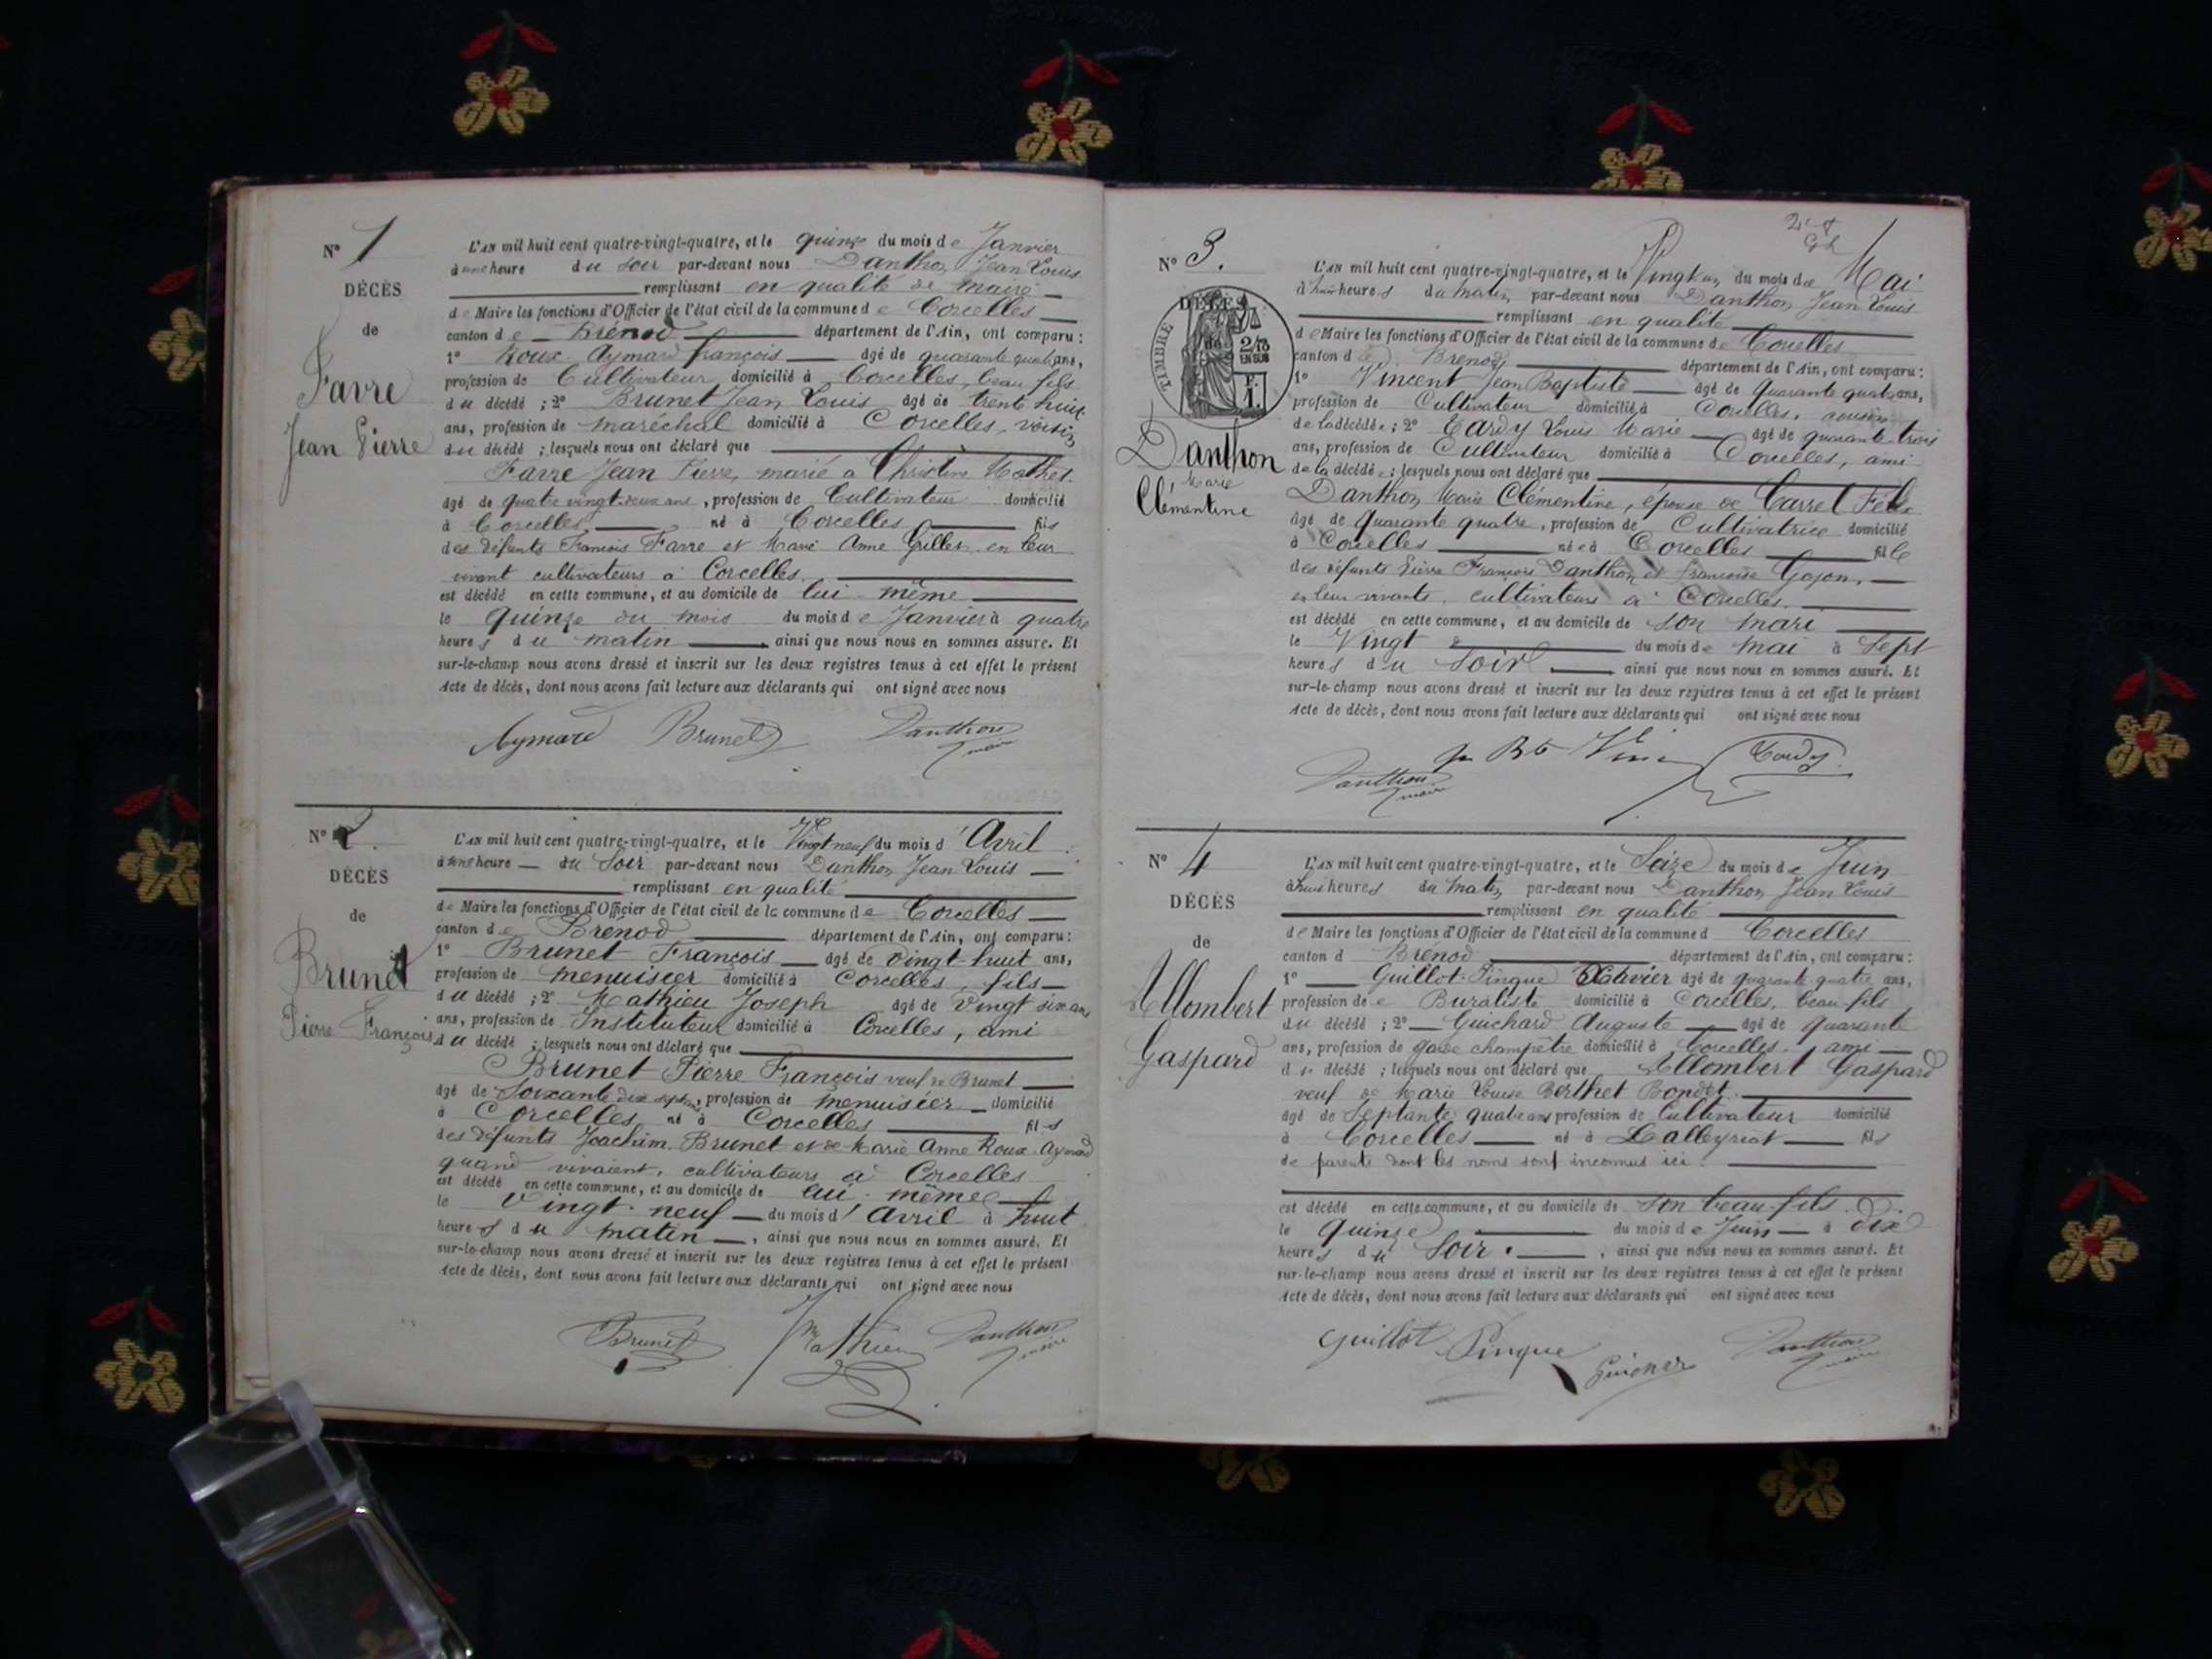 N° 1
DÉCÈS
de
Favre
Jean Pierre
L'AN mil huit cent quatre-vingt-quatre, et le quinze du mois de Janvier
à une heure du soir par-devant nous Danthon Jean Louis
remplissant en qualité de maire
de Maire les fonctions d'Officier de l'état civil de la commune de Corcelles
canton de Brénod département de l'Ain, ont comparu :
1° Roux Aymard françois âgé de quarante quatre ans,
profession de Cultivateur domicilié à Corcelles, beau fils
du décédé ; 2° Brunet Jean Louis âgé de trente huit
ans, profession de maréchal domicilié à Corcelles, voisin
du décédé ; lesquels nous ont déclaré que
Favre Jean Pierre, marié a Christine Mathet
âgé de quatre vingt deux ans, profession de Cultivateur domicilié
à Corcelles né à Corcelles fils
des défunts François Favre et Marie Anne Grillet en leur
vivant cultivateurs à Corcelles.
est décédé en cette commune, et au domicile de lui-même
le quinze du mois du mois de Janvier à quatre
heures du matin, ainsi que nous nous en sommes assuré. Et
sur-le-champ nous avons dressé et inscrit sur les deux registres tenus à cet effet le présent
Acte de décès, dont nous avons fait lecture aux déclarants qui ont signé avec nous
Aymard Brunet Danthon
maire
N° 2.
DÉCÈS
de
Brunet
Pierre François
L'AN mil huit cent quatre-vingt-quatre, et le Vingt neuf du mois d'Avril
à une heure du Soir par-devant nous Danthon Jean Louis
remplissant en qualité
de Maire les fonctions d'Officier de l'état civil de la commune de Corcelles
canton de Brénod département de l'Ain, ont comparu :
1° Brunet François âgé de Vingt-huit ans,
profession de menuisier domicilié à Corcelles, fils
du décédé ; 2° Mathieu Joseph âgé de Vingt six ans
ans, profession de Instituteur domicilié à Corcelles, ami
du décédé ; lesquels nous ont déclaré que
Brunet Pierre François veuf de Brunet
âgé de Soixante dix sept ans, profession de menuisier domicilié
à Corcelles né à Corcelles fils
des défunts Joachim Brunet et de Marie Anne Roux Aymard
quand vivaient, cultivateurs à Corcelles
est décédé en cette commune, et au domicile de lui-même
le Vingt-neuf du mois d'Avril à huit
heures du matin, ainsi que nous nous en sommes assuré. Et
sur-le-champ nous avons dressé et inscrit sur les deux registres tenus à cet effet le présent
Acte de décès, dont nous avons fait lecture aux déclarants qui ont signé avec nous
Brunet Mathieu Danthon
maire
N° 3.
DÉCÈS
de
TIMBRE
2/10
EN SUS
F.
1.
Danthon
Marie
Clémentine
L'AN mil huit cent quatre-vingt-quatre, et le Vingt un du mois de Mai
à huit heures du Matin, par-devant nous Danthon Jean Louis
remplissant en qualité
de Maire les fonctions d'Officier de l'état civil de la commune de Corcelles
canton de Brenod département de l'Ain, ont comparu :
1° Vincent Jean Baptiste âgé de Quarante quatre ans,
profession de Cultivateur domicilié à Corcelles, cousin
de la décédée ; 2° Tardy Louis Marie âgé de quarante-trois
ans, profession de Cultivateur domicilié à Corcelles, ami
de la décédée ; lesquels nous ont déclaré que
Danthon Marie Clémentine, épouse de Carrel Félix
âgé de Quarante quatre, profession de Cultivatrice domicilié
à Corcelles née à Corcelles fille
des défunts Pierre François Danthon et françoise Gojon,
en leur vivants, cultivateurs à Corcelles.
est décédé en cette commune, et au domicile de son mari
le Vingt du mois de mai à Sept
heures du Soir ainsi que nous nous en sommes assuré. Et
sur-le-champ nous avons dressé et inscrit sur les deux registres tenus à cet effet le présent
Acte de décès, dont nous avons fait lecture aux déclarants qui ont signé avec nous
Danthon Tardy
maire
N° 4
DÉCÈS
de
Allombert
Gaspard
L'AN mil huit cent quatre-vingt-quatre, et le Seize du mois de Juin
à huit heures du Matin, par-devant nous Danthon Jean Louis
remplissant en qualité
de Maire les fonctions d'Officier de l'état civil de la commune d Corcelles
canton d Brénod département de l'Ain, ont comparu :
1° Guillot-Pingue Xavier âgé de quarante quatre ans,
profession de Buraliste domicilié à Corcelles, beau-fils
du décédé ; 2° Guichard Auguste âgé de quarante
ans, profession de garde champêtre domicilié à Corcelles. ami
du décédé ; lesquels nous ont déclaré que Allombert Gaspard
veuf de Marie Louise Berthet Bondet
âgé de Septante quatre ans profession de Cultivateur domicilié
à Corcelles né à Lalleyriat fils
de parents dont les noms sont inconnus ici.
est décédé en cette commune, et au domicile de son beau-fils
le quinze du mois de Juin à dix
heures du Soir, ainsi que nous nous en sommes assuré. Et
sur-le-champ nous avons dressé et inscrit sur les deux registres tenus à cet effet le présent
Acte de décès, dont nous avons fait lecture aux déclarants qui ont signé avec nous
Guillot Pingue Danthon
maire